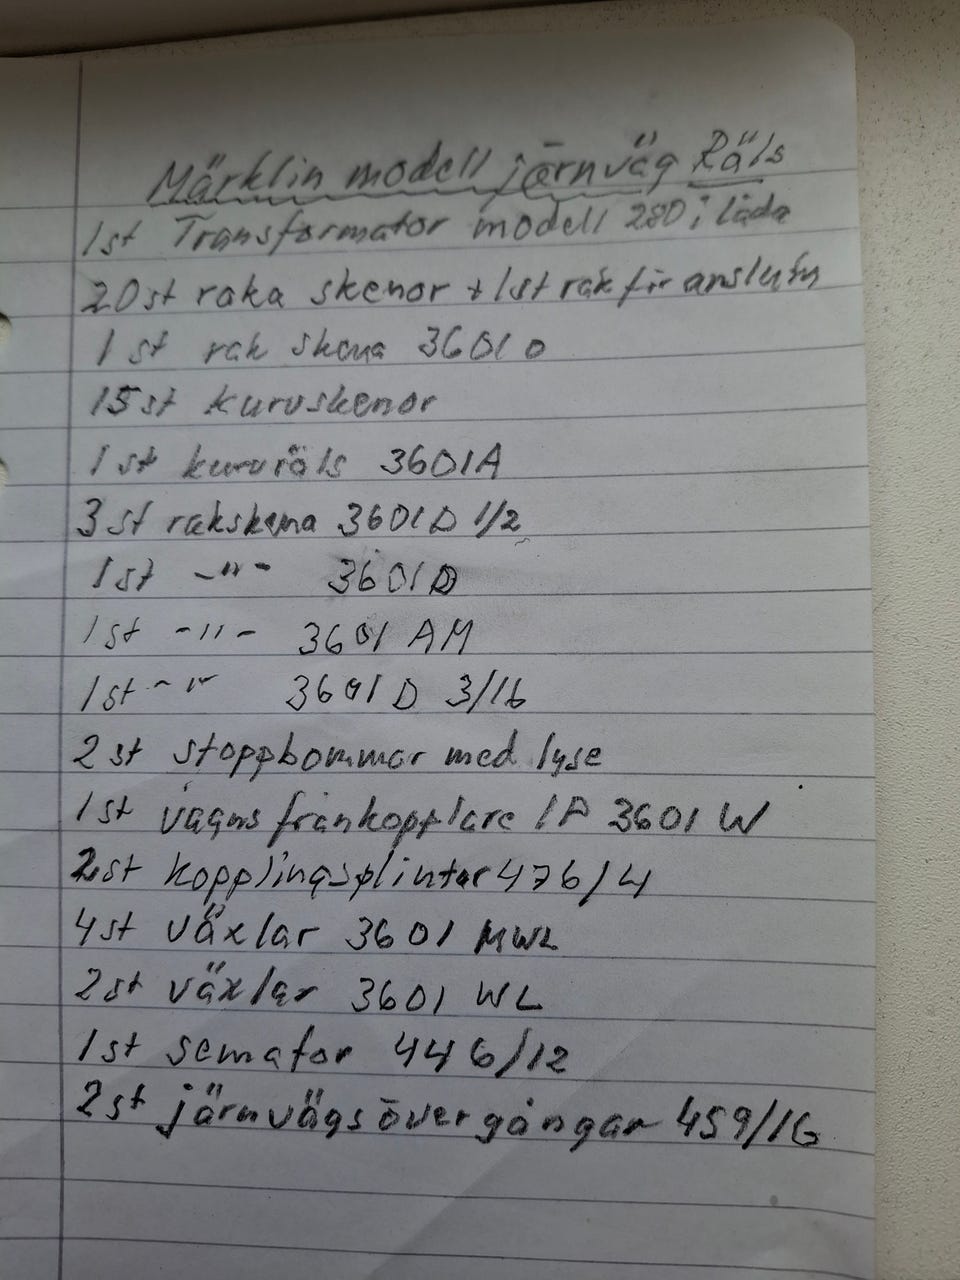 Märklin modell järnväg Räls
1st Transformator modell 280 i låda
20st raka skenor + 1st rak för anslutn
1 st rak skena 3601 D
15 st kurvskenor
1 st kurvräls 3601A
3 st rakskena 3601 D 1/2
1st -"- 3601 D
1st -"- 3601 AM
1st -"- 3601 D 3/16
2 st stoppbommar med lyse
1st vagns frånkopplare 1A 3601 W
2st kopplingsplintar 476/4
4st växlar 3601 MWL
2st växlar 3601 WL
1st semafor 446/12
2st järnvägsövergångar 459/16